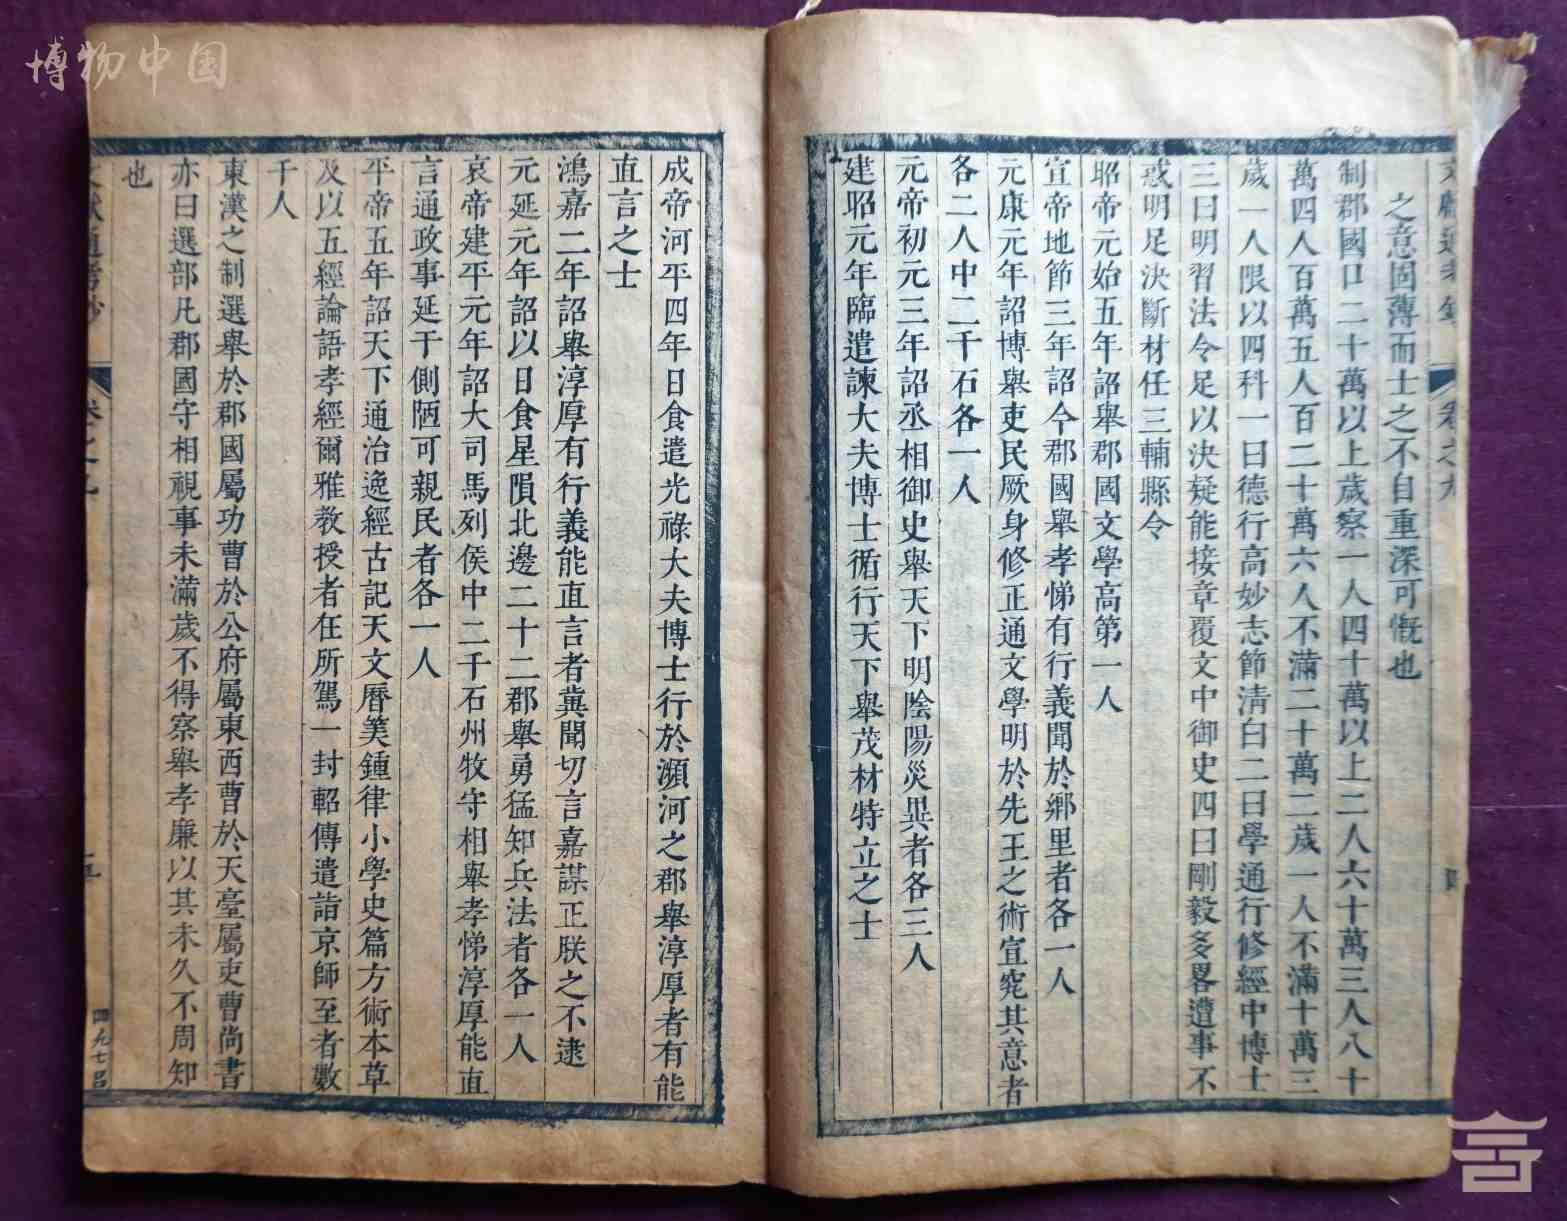 博物中国
之意固薄而士之不自重深可慨也
制郡國口二十萬以上歲察一人四十萬以上二人六十萬三人八十
萬四人百萬五人百二十萬六人不滿二十萬二歲一人不滿十萬三
歲一人限以四科一曰德行高妙志節清白二曰學通行修經中博士
三曰明習法令足以決疑能接章覆文中御史四曰剛毅多畧遭事不
惑明足決斷材任三輔縣令
昭帝元始五年詔舉郡國文學高第一人
宣帝地節三年詔令郡國舉孝悌有行義聞於鄉里者各一人
元康元年詔博舉吏民厥身修正通文學明於先王之術宣究其意者
各二人中二千石各一人
元帝初元三年詔丞相御史舉天下明陰陽災異者各三人
建昭元年臨遣諫大夫博士循行天下舉茂材特立之士
卷之九
成帝河平四年日食遣光祿大夫博士行於瀕河之郡舉淳厚者有能
直言之士
鴻嘉二年詔舉淳厚有行義能直言者冀聞切言嘉謀正朕之不逮
元延元年詔以日食星隕北邊二十二郡舉勇猛知兵法者各一人
哀帝建平元年詔大司馬列侯中二千石州牧守相舉孝悌淳厚能直
言通政事延于側陋可親民者各一人
平帝五年詔天下通治逸經古記天文曆筭鍾律小學史篇方術本草
及以五經論語孝經爾雅教授者在所駕一封軺傳遣詣京師至者數
千人
東漢之制選舉於郡國屬功曹於公府屬東西曹於天臺屬吏曹尚書
亦曰選部凡郡國守相視事未滿歲不得察舉孝廉以其未久不周知
也
四九七呂